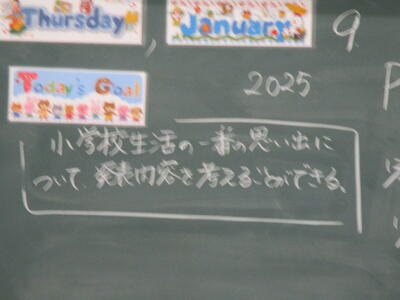 Thursday, January 9.
2025
Today's Goal
小学校生活の一番の思い出に
ついて、発表内容を考えることができる。